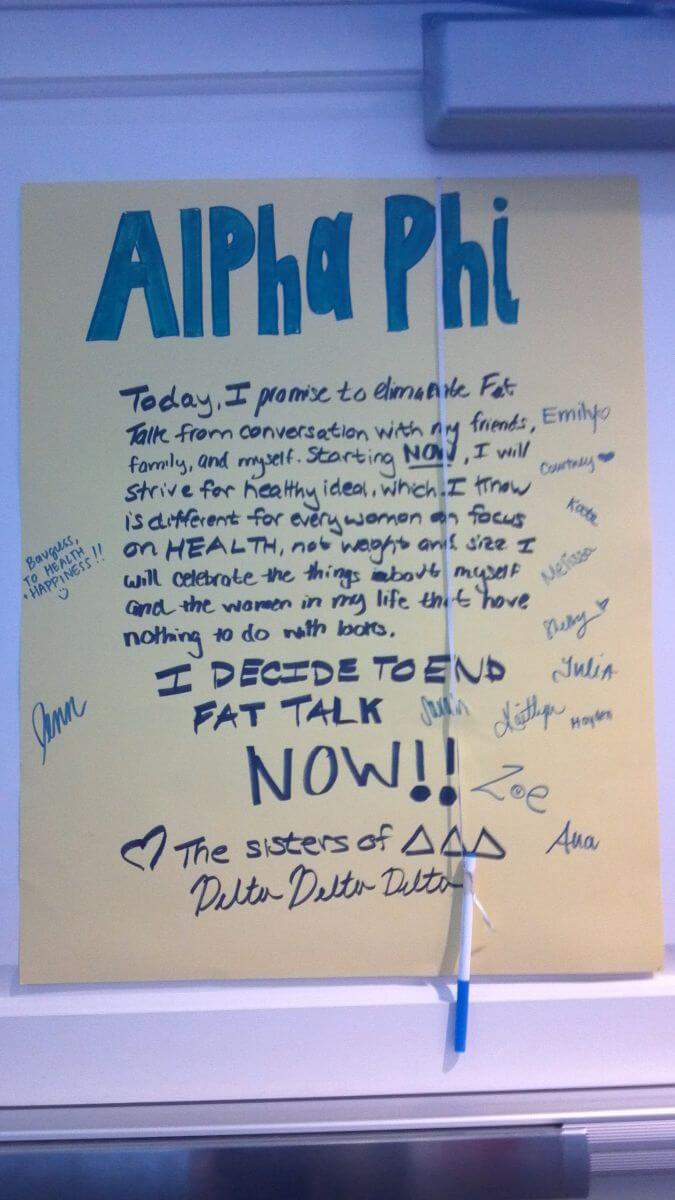 Alpha Phi
Today, I promise to eliminate Fat
Talk from conversation with my friends,
family, and myself. Starting NOW, I will
strive for healthy ideal, which I know
is different for every woman on focus
on HEALTH, not weight and size I
will celebrate the things about myself
and the women in my life that have
nothing to do with looks.
I DECIDE TO END
FAT TALK
NOW!!
The sisters of ΔΔΔ
Delta Delta Delta
Emily
Courtney
Kate
Melissa
Shelby
Julia
Sarah
Kaitlyn
Hayden
Zoe
Ana
TO HEALTH
+ HAPPINESS!!
Jenn